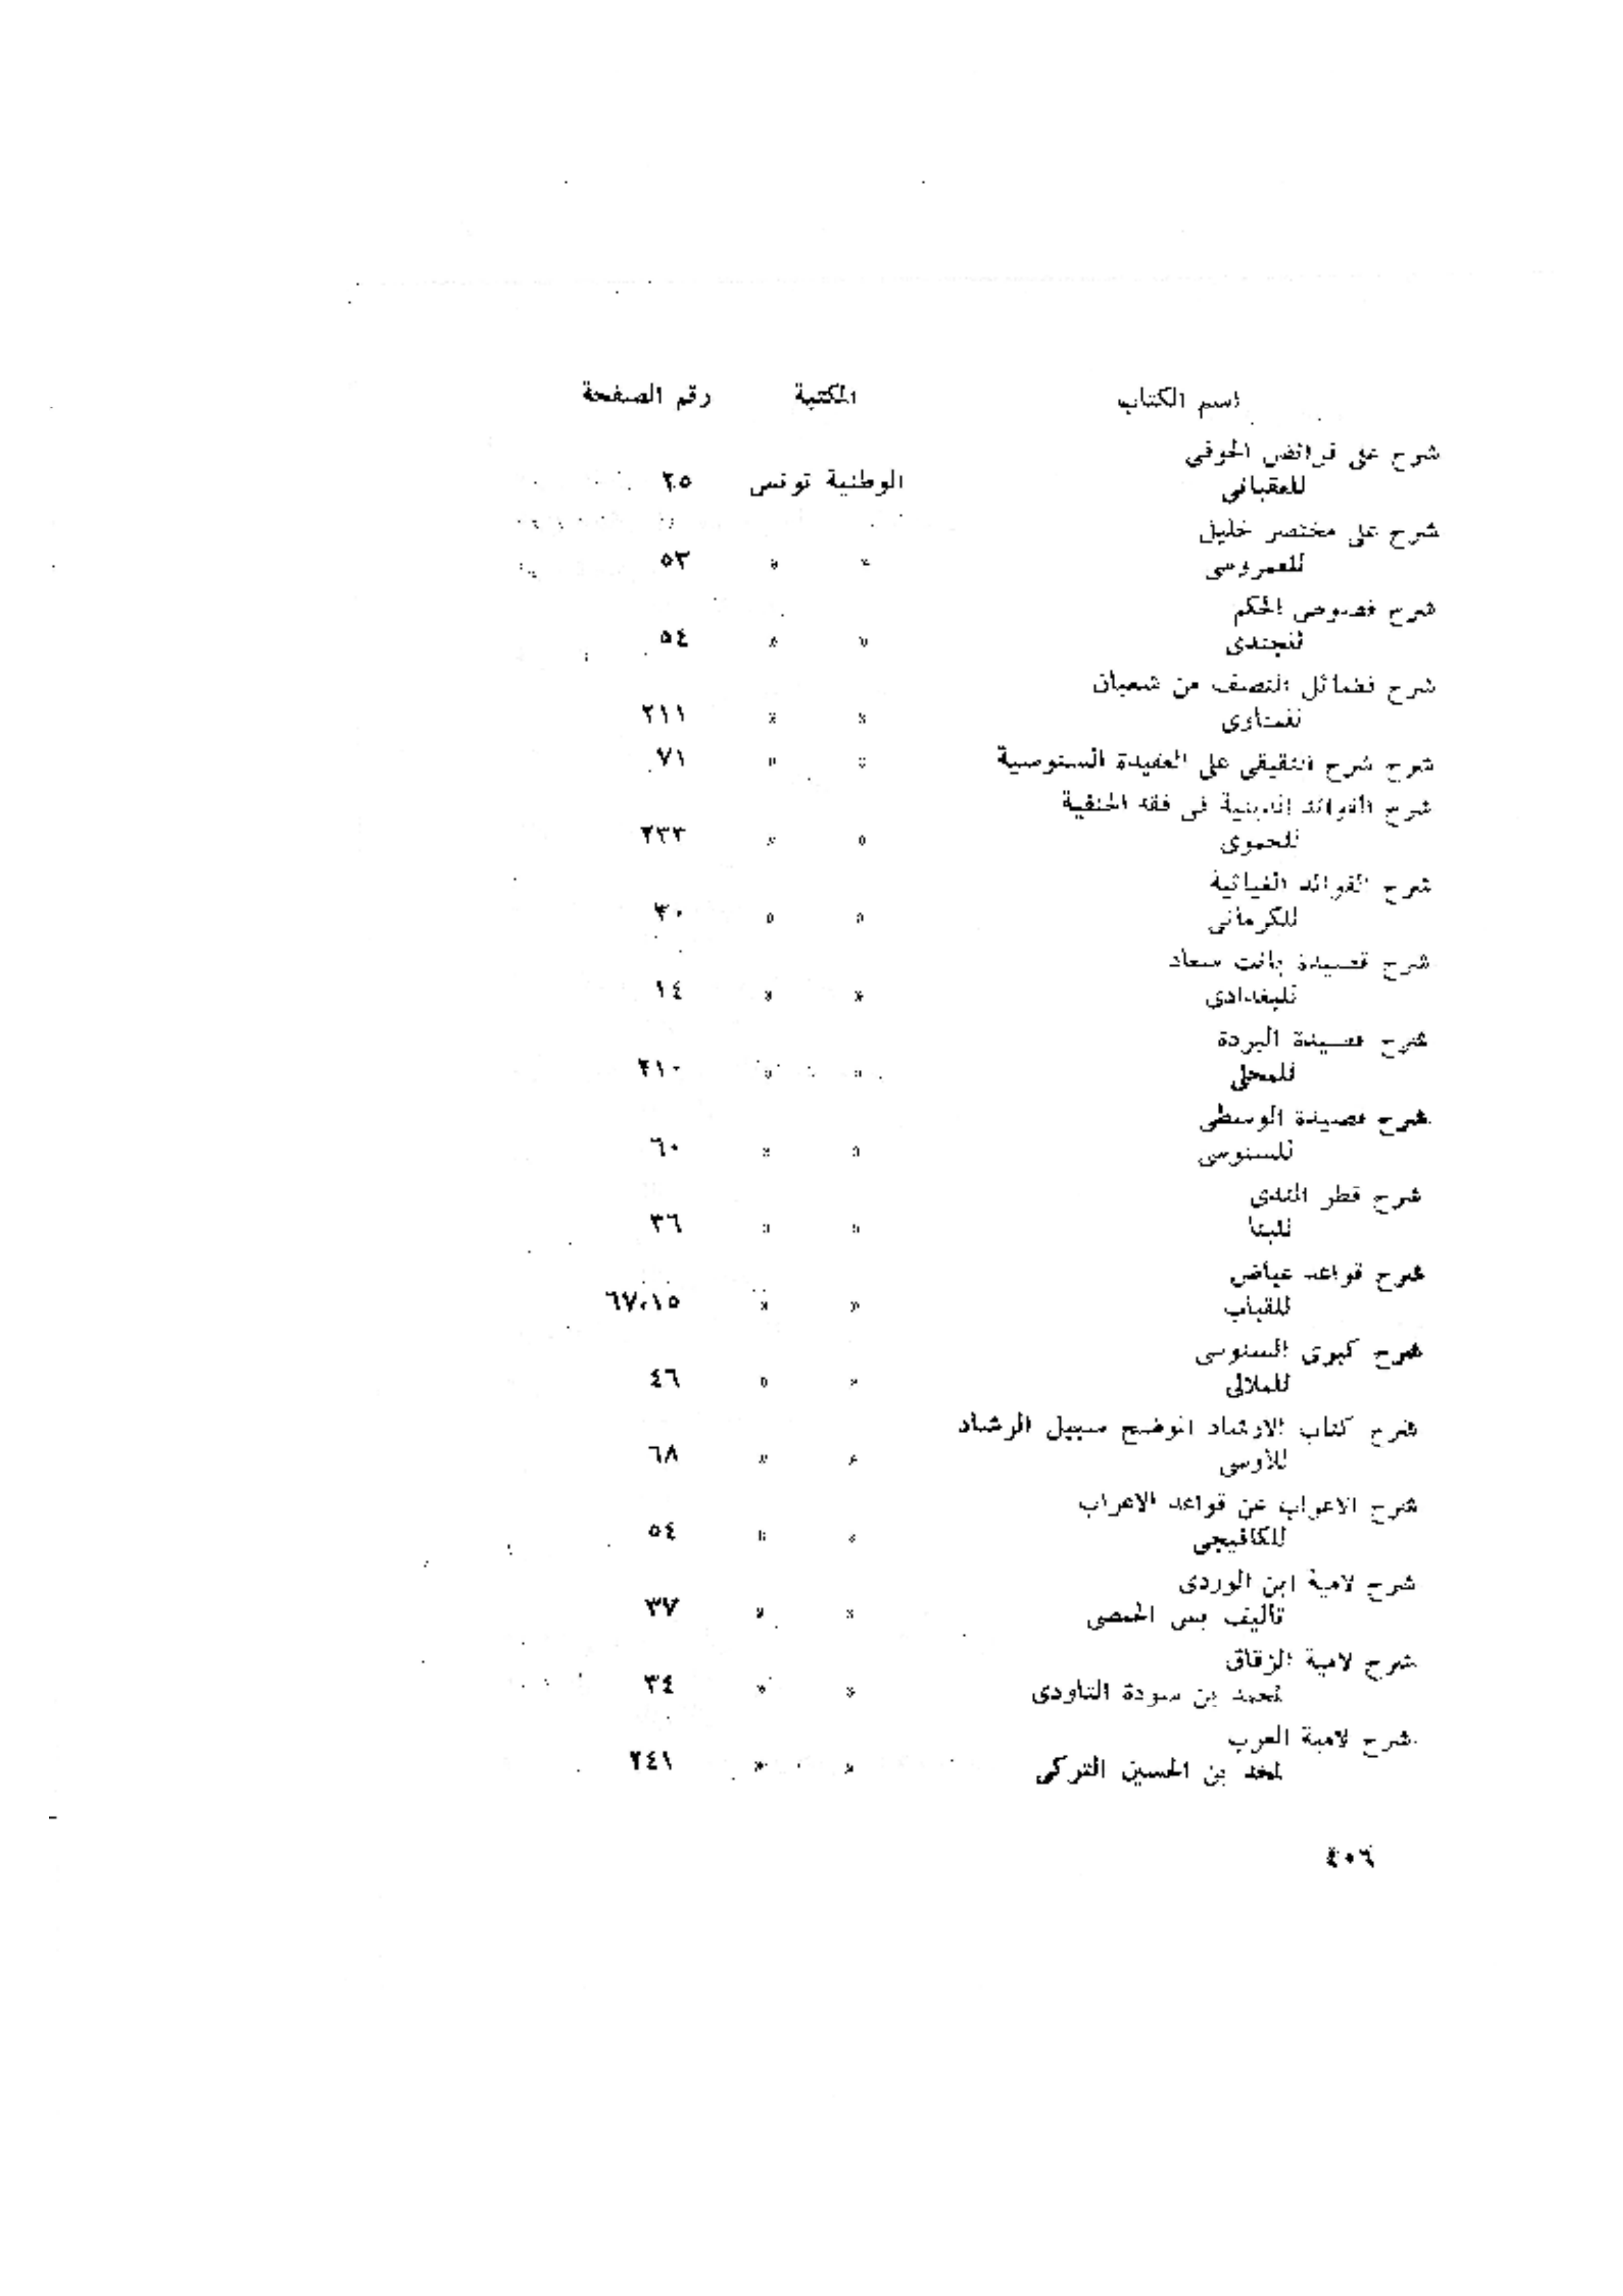 اسم الكتاب المكتبة رقم الصفحة
شرح على فرائض الحوفي
للعقبانى الوطنية تونس ٢٥
شرح على مختصر خليل
للعمروسى » » ٥٣
شرح فصوص الحكم
للجندى » » ٥٤
شرح فضائل النصف من شعبان
» » ٢١١
شرح شرح على العقيدة السنوسية » » ٧١
شرح الفوائد فى فقه الحنفية
للحموى » » ٢٣٣
شرح الفوائد الغياثية
للكرمانى » » ٣٠
شرح قصيدة بانت سعاد
للبغدادى » » ١٤
شرح قصيدة البردة
للمحلى » » ٢١٠
شرح قصيدة الوسطى
للسنوسى » » ٦٠
شرح قطر الندى
للبنا » » ٣٦
شرح قواعد عياض
للقباب » » ٦٧،١٥
شرح كبرى السنوسى
للملالى » » ٤٦
شرح كتاب الارشاد الموضح سبيل الرشاد
للأوسى » » ٦٨
شرح الاعراب عن قواعد الاعراب
للكافيجى » » ٥٤
شرح لامية ابن الوردى
تأليف يس الحمصى » » ٣٧
شرح لامية الزقاق
لمحمد بن سودة التاودى » » ٣٤
شرح لامية العرب
لمحمد بن الحسين التركى » » ٢٤١
٤٠٦